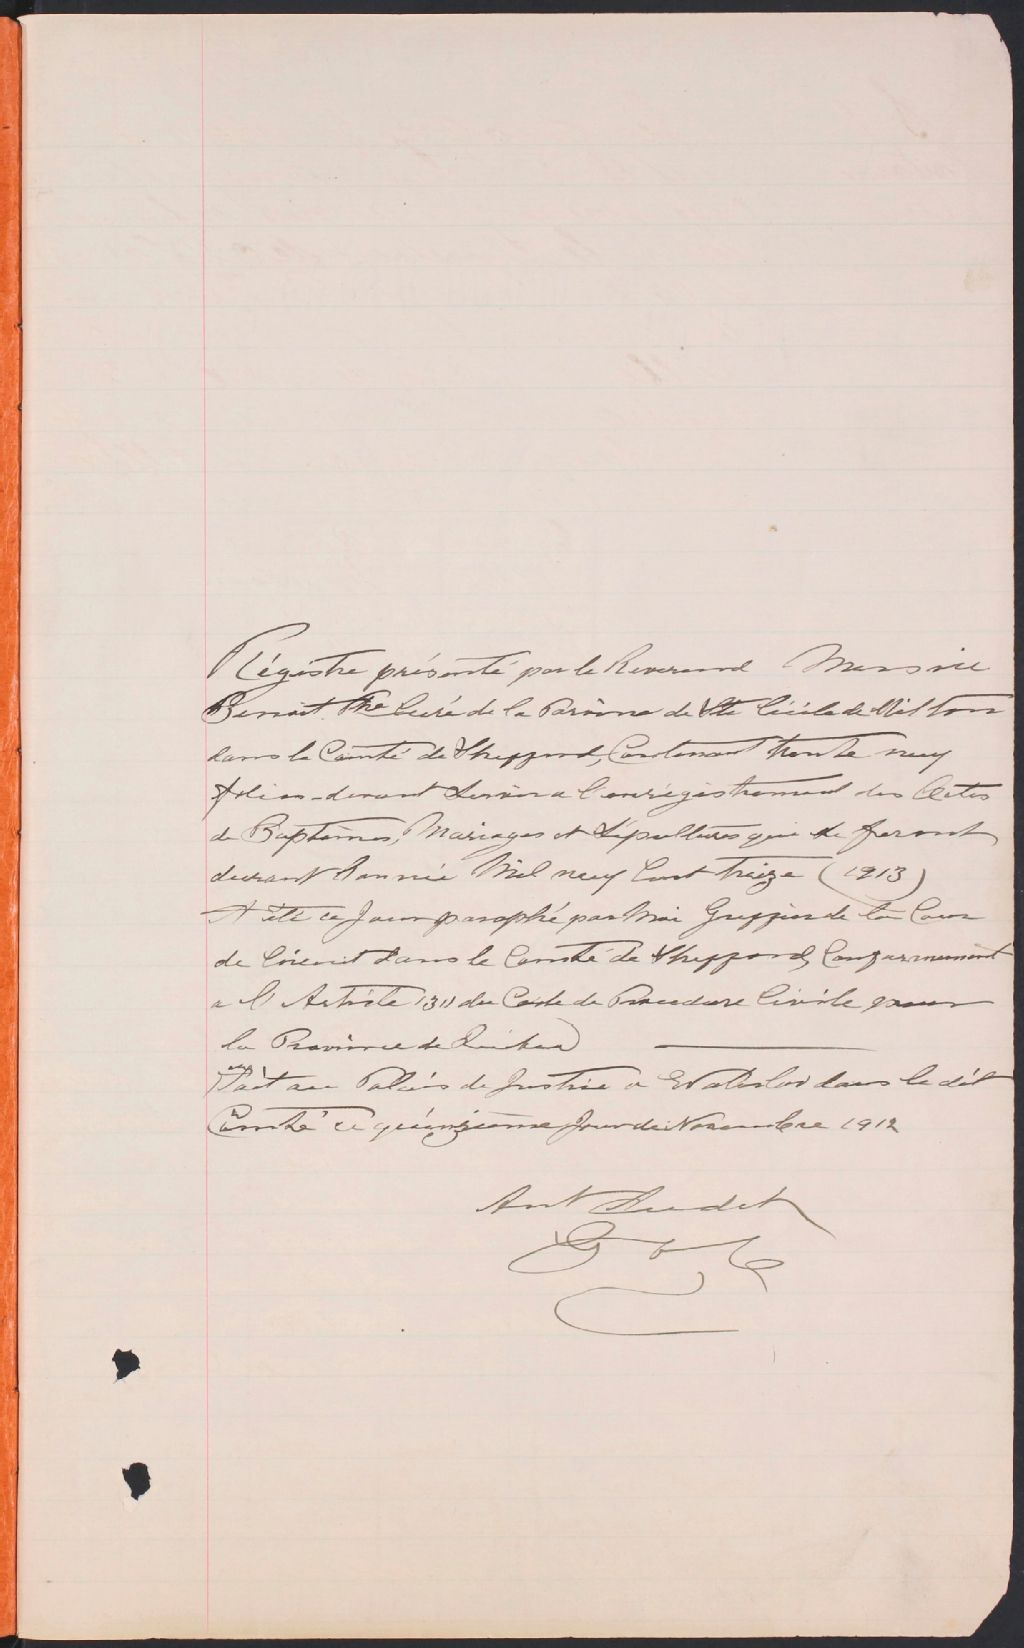 Régistre présenté par le Reverend Messire
Benoit Ptre Curé de la Paroisse de Ste Cécile de Milton
dans le Comté de Shefford, Contenant trente neuf
folios devant Servir a l'enrégistrement des Actes
de Baptêmes, Mariages et Sépultures qui se feront
durant l'année Mil neuf Cent Treize (1913)
A été ce Jour paraphé par Moi Greffier de la Cour
de Circuit dans le Comté de Shefford, Conformement
a l'Article 1311 du Code de Procedure Civile pour
la Province de Québec
Fait au Palais de Justice a Waterloo dans le dit
Comté ce quinzième Jour de Novembre 1912
Ant Audet